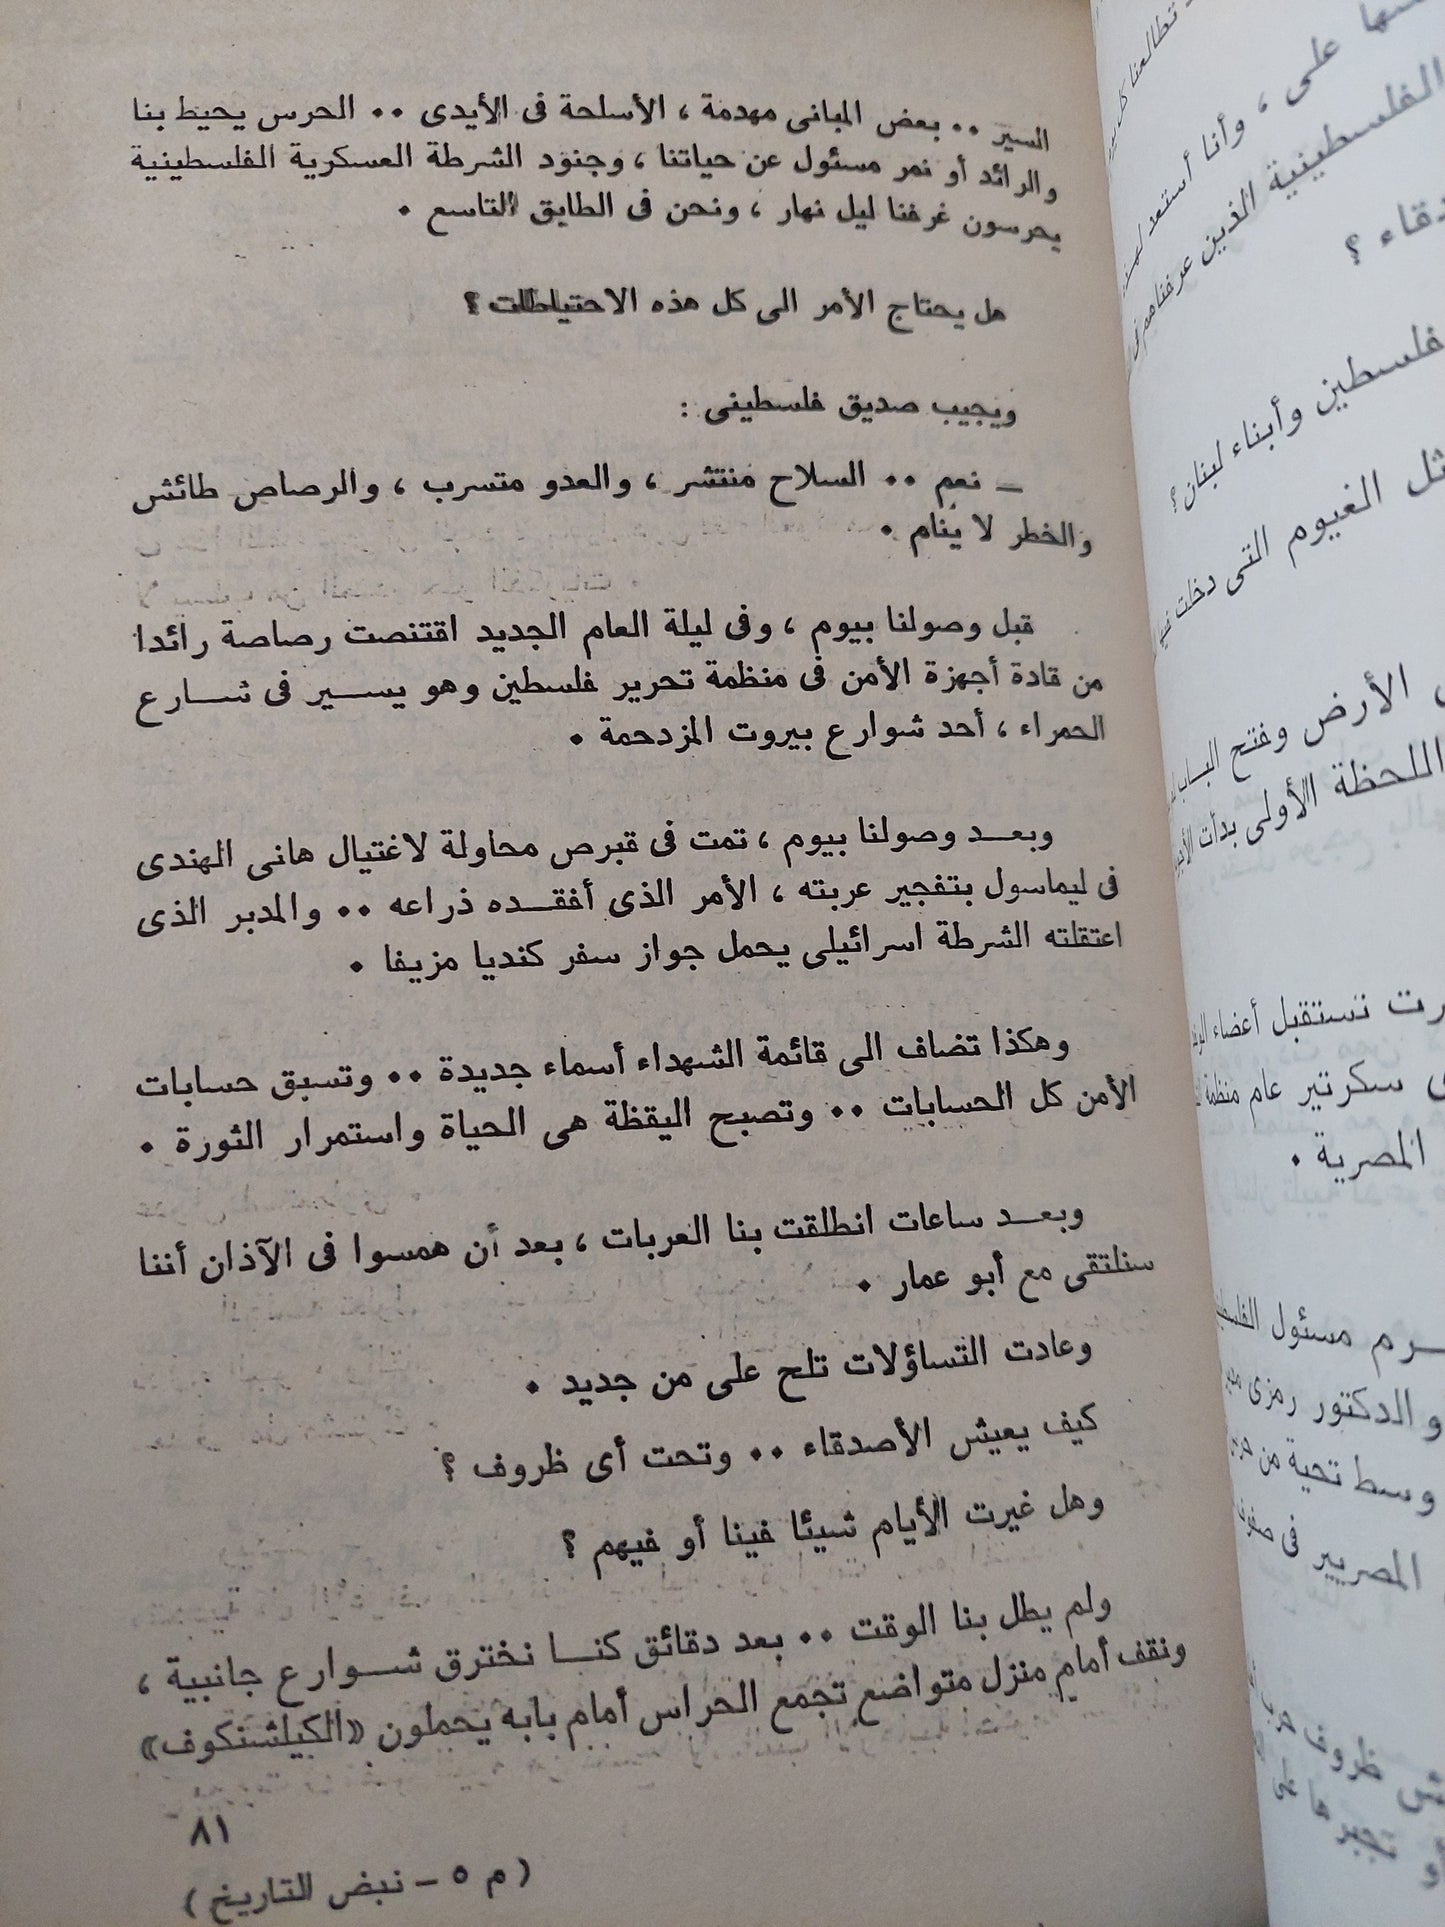 السير ٠٠ بعض المبانى مهدمة ، الأسلحة فى الأيدى ٠٠ الحرس يحيط بنا
والرائد أو نمر مسئول عن حياتنا ، وجنود الشرطة العسكرية الفلسطينية
يحرسون غرفنا ليل نهار ، ونحن فى الطابق التاسع ٠
هل يحتاج الأمر الى كل هذه الاحتياطات ؟
ويجيب صديق فلسطينى :
ــ نعم ٠٠ السلاح منتشر ، والعدو متسرب ، والرصاص طائش
والخطر لا ينام ٠
قبل وصولنا بيوم ، وفى ليلة العام الجديد اقتنصت رصاصة رائدا
من قادة أجهزة الأمن فى منظمة تحرير فلسطين وهو يســير فى شــارع
الحمراء ، أحد شوارع بيروت المزدحمة ٠
وبعــد وصولنا بيوم ، تمت فى قبرص محاولة لاغتيال هانى الهندى
فى ليماسول بتفجير عربته ، الأمر الذى أفقــده ذراعه ٠٠ والمدبر الذى
اعتقلته الشرطة اسرائيلى يحمل جواز سفر كنديا مزيفا ٠
وهكذا تضاف الى قائمة الشهداء أسماء جديدة ٠٠ وتسبق حسابات
الأمن كل الحسابات ٠٠ وتصبح اليقظة هى الحياة واستمرار الثورة ٠
وبعــد ساعات انطلقت بنا العربات ، بعد أن همسوا فى الآذان أننا
سنلتقى مع أبو عمار ٠
وعادت التساؤلات تلح على من جديد ٠
كيف يعيش الأصدقاء ٠٠ وتحت أى ظروف ؟
وهل غيرت الأيام شيئا فينا أو فيهم ؟
ولم يطل بنا الوقت ٠٠ بعد دقائق كنــا نخترق شــوارع جانبية ،
ونقف أمام منزل متواضع تجمع الحراس أمام بابه يحملون «الكيلشنكوف»
٨١
( م ٥ ــ نبض التاريخ )
تطالعنا
على ، وأنا أستعد
الفلسطينية الذين عرفناهم فى
؟
فلسطين وأبناء لبنان ؟
الغيوم التى دخلت
الأرض وفتح الباب
اللحظة الأولى بدأت
نستقبل أعضاء
سكرتير عام منظمة
المصرية ٠
مسئول
والدكتور رمزى
وسط تحية من
المصريير فى
ظروف